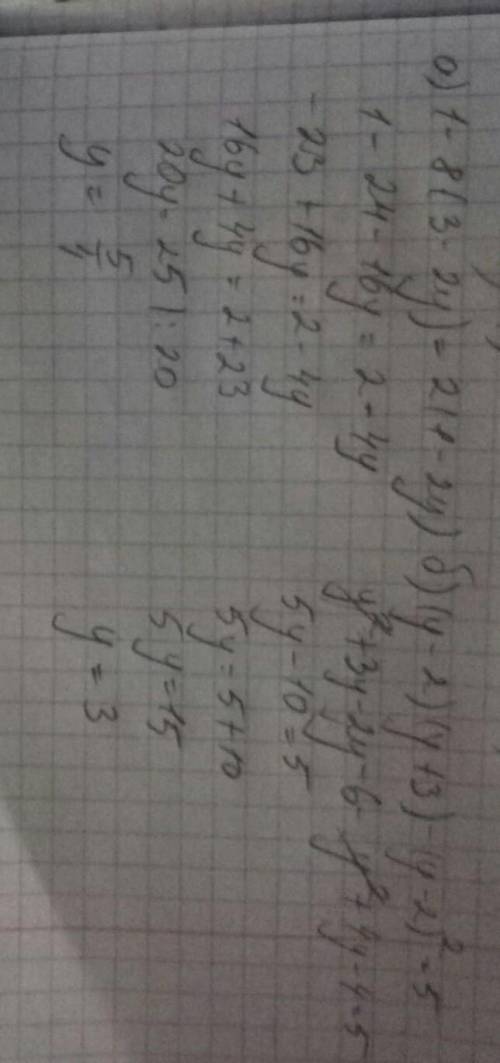 а) 1 - 8(3 - 2y) = 2(1 - 2y)
1 - 24 - 16y = 2 - 4y
- 23 + 16y = 2 - 4y
16y + 4y = 2 + 23
20y - 25 | : 20
y = 5/4
б) (y - 2)(y + 3) - (y - 2)² = 5
y² + 3y - 2y - 6 - y² + 4y - 4 = 5
5y - 10 = 5
5y = 5 + 10
5y = 15
y = 3